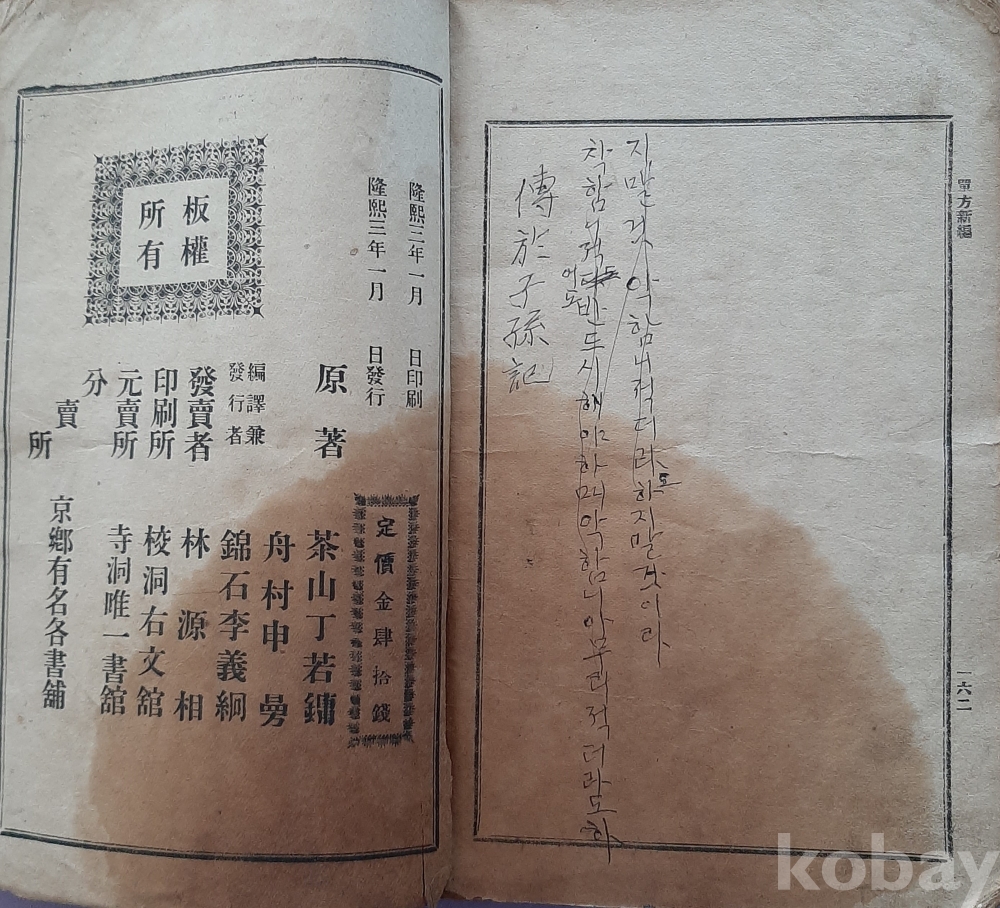 單方新編
一六二
傳於子孫記
착함니적어도반드시해야하며악함니아무리적더라도하
지말것악함니적더라도하지말것이라
隆熙三年一月 日印刷
隆熙三年一月 日發行
定價金肆拾錢
原著 茶山丁若鏞
舟村申曼
編譯兼
發行者 錦石李義絅
發賣者 林源相
印刷所 校洞右文舘
元賣所 寺洞唯一書舘
分賣所 京鄕有名各書舖
板權
所有
kobay